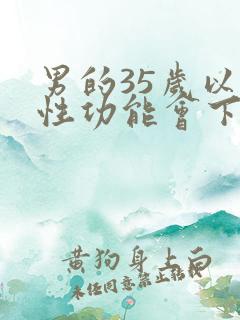 男的35歲以
性功能會下
黃狗身上白
未经同意禁止转载